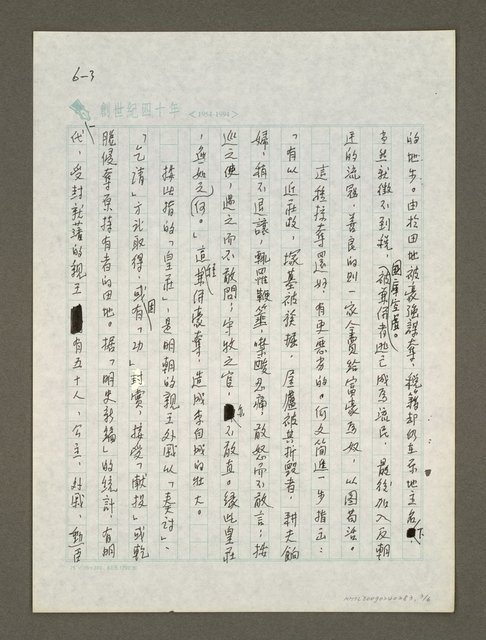 6-3
創世紀四十年 <1954-1994>
的地步。由於田地被豪強謀奪，稅籍却仍在原地主名下，
當然就徵不到稅，國庫空虛。被兼併者逃亡成為流民，最後加入反朝
廷的流寇，善良的則一家金賣給富豪為奴，以圖苟活。
這種掠奪還好，有更惡者的。何文簡進一步指出：
「有以近莊故，塚墓被發掘，屋廬被其折毀者，耕夫餉
婦，稍不退讓，輒羅鞭箠，嚛酸忍痛敢怒而不敢言；按
巡之使，遇之而不敢問；守牧之官，亦不敢直。緣此皇莊
，逾如之何。」這種兼併豪奪，造成李自成的壯大。
按此指的「皇莊」，是明朝的親王外戚以「奏討」、
「乞請」方式取得，或有「因功」封賞，接受「献投」或乾
脆侵奪原持有者的田地。據「明史新編」的統計，有明一
代，受封就藩的親王有五十人，公主、外戚、勳臣
NMTL20090240083 3/6